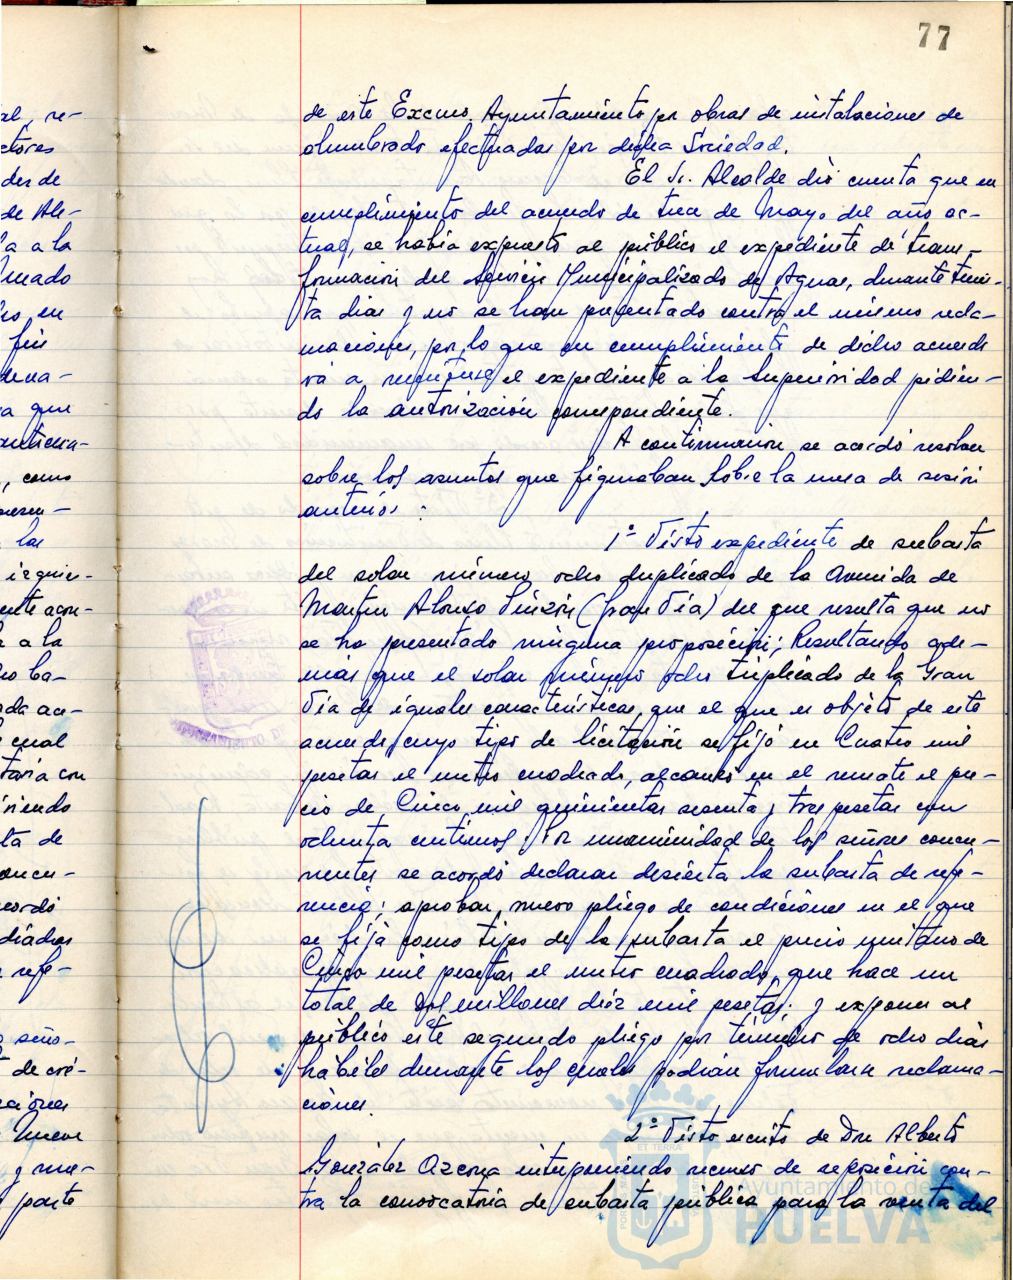 77
de este Excmo. Ayuntamiento por obras de instalaciones de
alumbrado efectuadas por dicha Sociedad.
El Sr. Alcalde dió cuenta que en
cumplimiento del acuerdo de trece de Mayo del año ac-
tual, se había expuesto al público el expediente de trans-
formación del Servicio Municipalizado de Aguas, durante trein-
ta dias y no se han presentado contra el mismo recla-
maciones, por lo que en cumplimiento de dicho acuerdo
vá a remitirse el expediente a la Superioridad pidien-
do la autorización correspondiente.
A continuación se acordó resolver
sobre los asuntos que figuraban sobre la mesa de sesión
anterior:
1º Visto expediente de subasta
del solar número ocho duplicado de la Avenida de
Martin Alonso Pinzón (Gran Vía) del que resulta que no
se ha presentado ninguna proposición; Resultando ade-
más que el solar número ocho triplicado de la Gran
Vía de iguales características que el que es objeto de este
acuerdo cuyo tipo de licitación se fijó en Cuatro mil
pesetas el metro cuadrado, alcanzó en el remate el pre-
cio de Cinco mil quinientas sesenta y tres pesetas con
ochenta centimos. Por unanimidad de los señores concu-
rrentes se acordó declarar desierta la subasta de refe-
rencia; aprobar nuevo pliego de condiciones en el que
se fija como tipo de la subasta el precio unitario de
Cinco mil pesetas el metro cuadrado, que hace un
total de dos millones diez mil pesetas; y exponer al
público este segundo pliego por término de ocho dias
hábiles durante los cuales podrán formularse reclama-
ciones.
2º Visto escrito de Don Alberto
González Azcona interponiendo recurso de reposición con-
tra la convocatoria de subasta pública para la venta del
Ayuntamiento de
HUELVA
al, re-
ctores
des de
de Ale-
a la
en
fin
que
, como
las
izquier-
a la
ba-
cual
con
ta de
acordó
refe-
seño-
de cré-
Nueve
parte